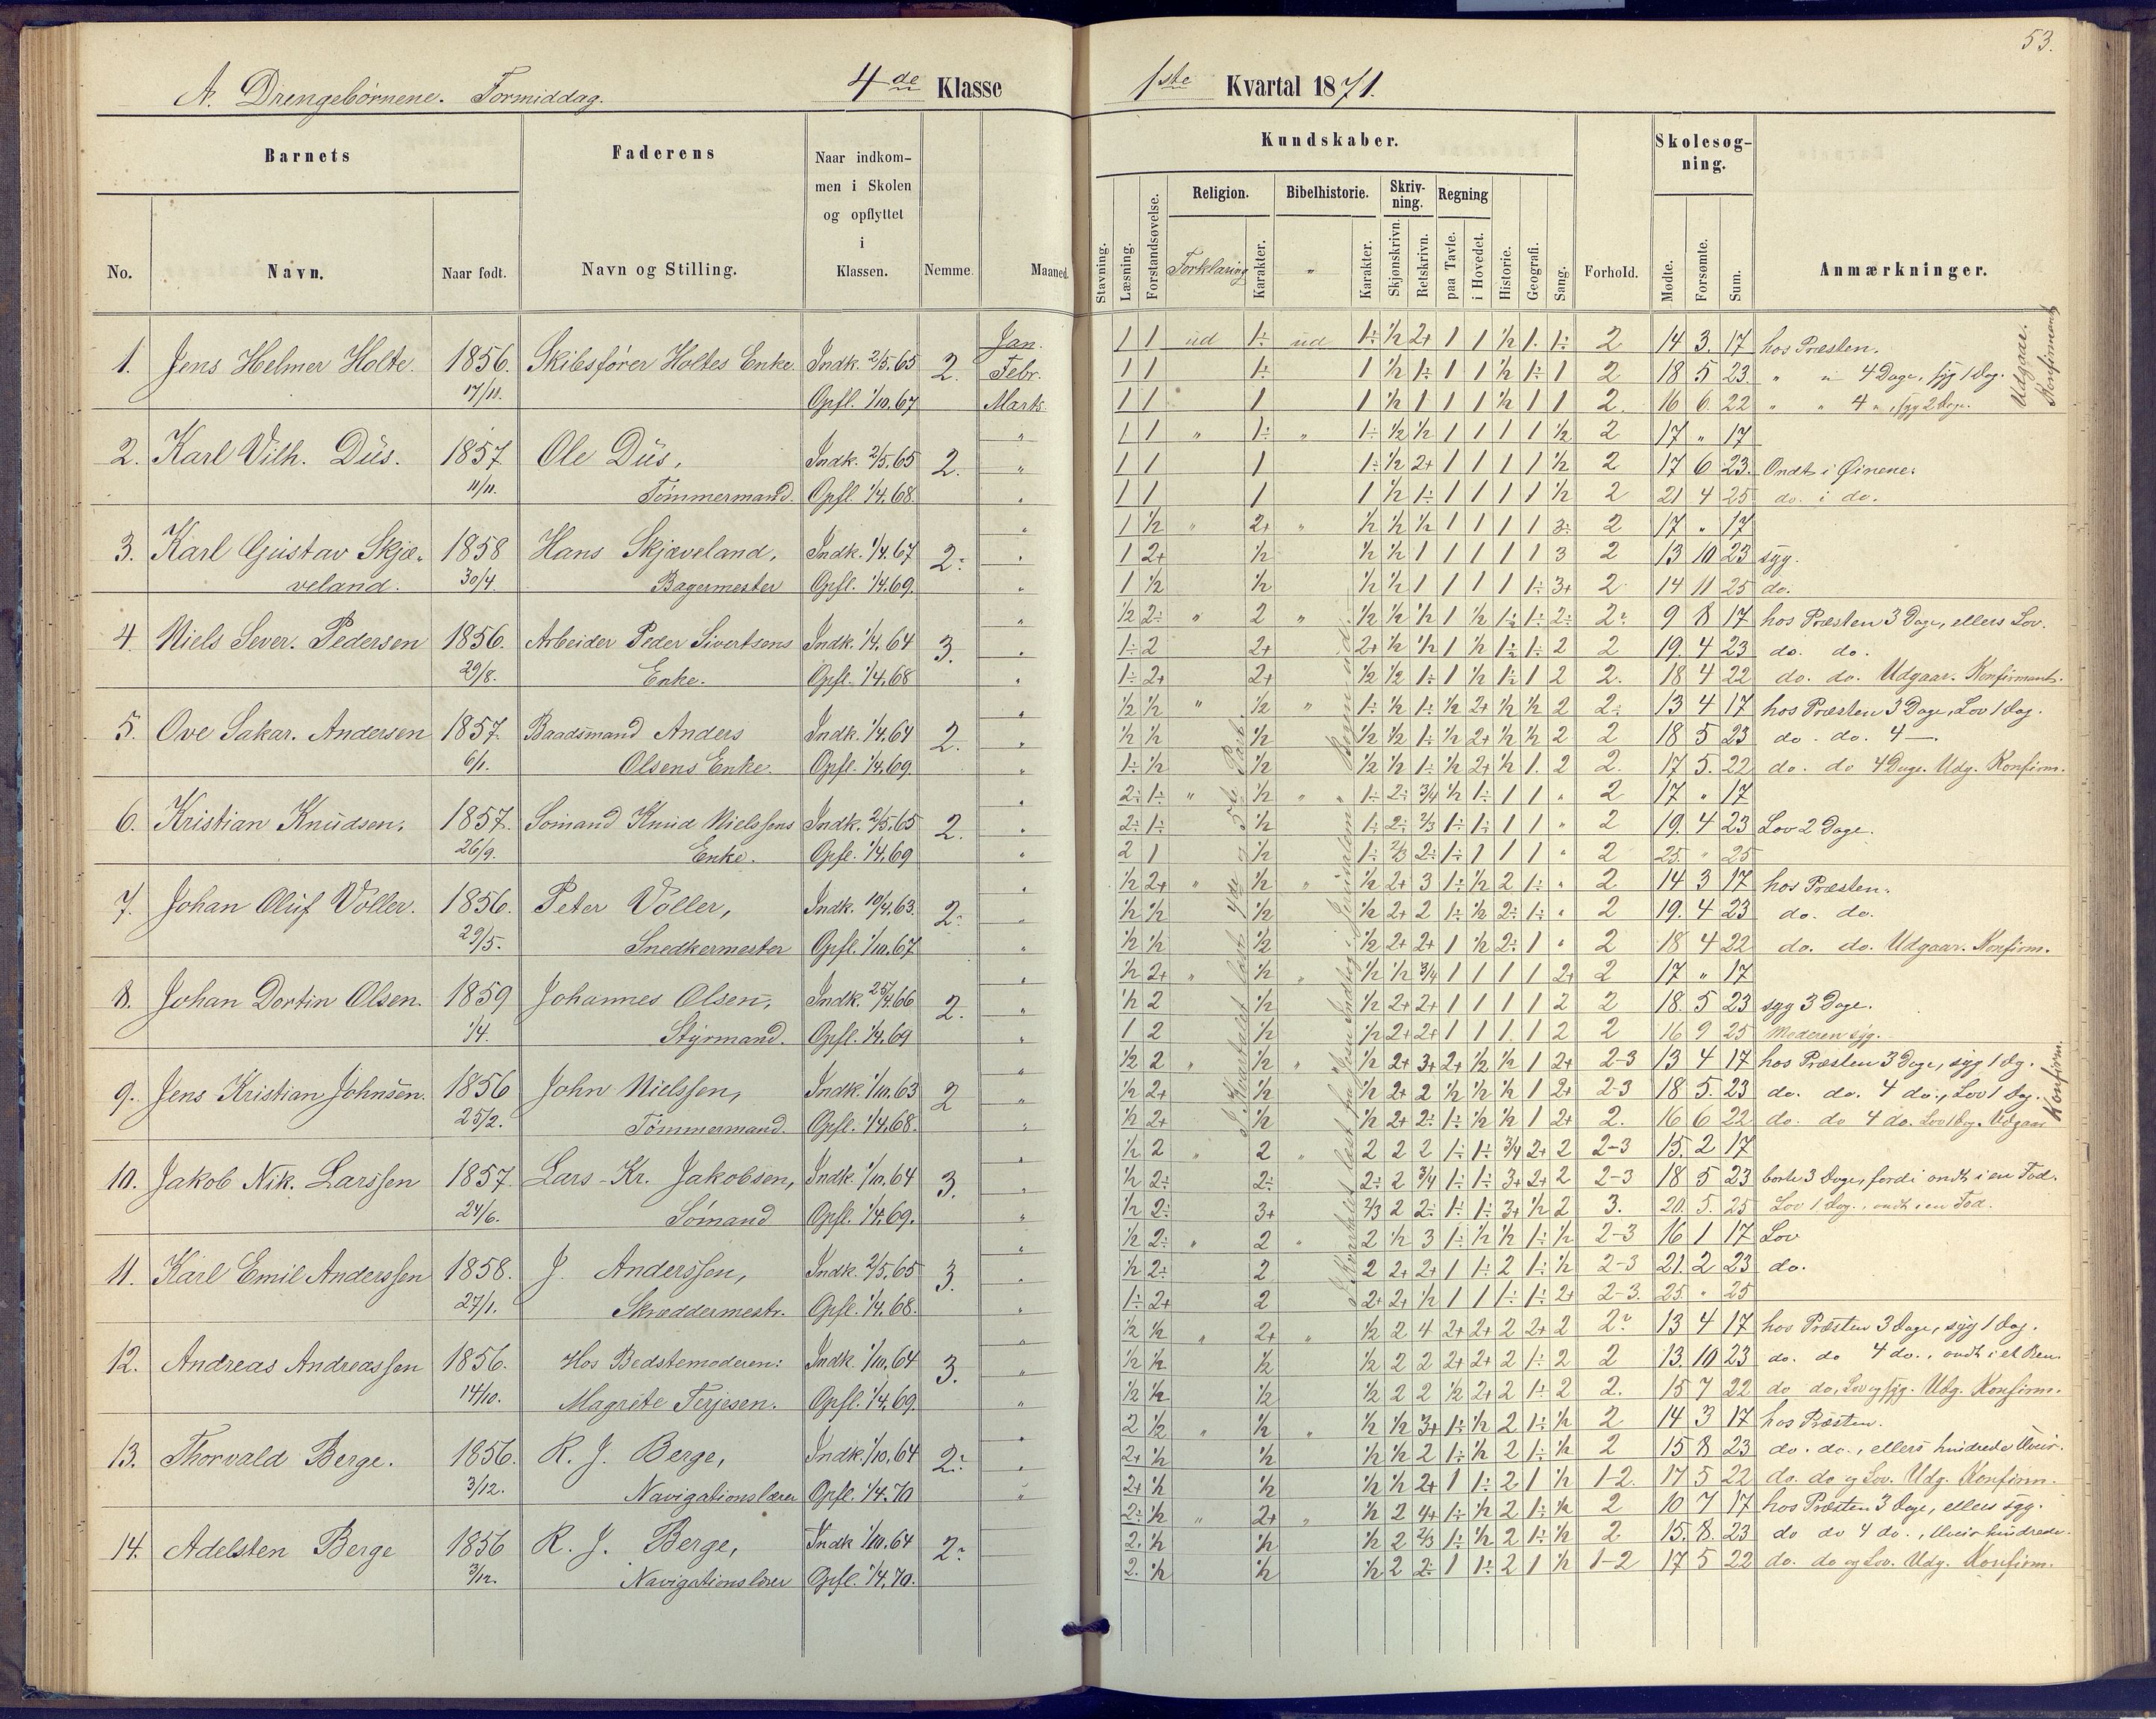 53.
A. Drengebørnene. Formiddag. 4de Klasse 1ste Kvartal 1871.
Barnets Faderens Naar indkom- Kundskaber. Skolesøg-
men i Skolen ning.
og opflyttet Religion. Bibelhistorie. Skriv- Regning
ning.
i
No. Navn. Naar født. Navn og Stilling. Klassen. Nemme. Maaned. Stavning. Læsning. Forstandsøvelse. Forklaring Karakter. " Karakter. Skjønskrivn. Retskrivn. paa Tavle. i Hovedet. Historie. Geografi. Sang. Forhold. Mødte. Forsømte. Sum. Anmærkninger.
Jan. 1 1 ud 1÷ ud 1÷ ½ 2+ 1 1 ½ 1. 1÷ 2 14 3. 17 hos Præsten.
1. Jens Helmer Holte. 1856. Skibsfører Holtes Enke. Indk. 2/5.65 2. Febr. 1 1 1÷ 1 ½ 1÷ 1 1 ½ 1÷ 1 2 18 5 23. " " 4 Dage, syg 1 Dag.
17/11. Opfl. 1/10.67 Marts 1 1 1 1 ½ 1 1 1 ½ 1 1 2. 16 6 22 " " 4 ", syg 2 Dage.
Udgaar. Konfirmant
" 1 1 " 1÷ " 1÷ ½ ½ 1 1 1 1 ½ 2 17 " 17
2. Karl Vilh. Düs. 1857 Ole Düs, Indk. 2/5.65 2. " 1 1 1 1÷ ½ 2+ 1 1 1 1 ½ 2 17 6 23. Ondt i Øinene.
11/11. Tømmermand. Opfl. 1/4.68. " 1 1 1 1 ½ 1÷ 1 1 1 1 ½ 2 21 4 25 do. i do.
" 1 ½ " 2+ " ½ ½ ½ 1 1 1 1 3÷ 2 17 " 17
3. Karl Gustav Skjæ- 1858 Hans Skjæveland, Indk. 1/4.67 2÷ " 1 2+ ½ ½ ½ 1 1 1 1 1 3 2 13 10 23 syg.
veland. 30/4. Bagermester Opfl. 1/4.69. " 1 ½ ½ ½ ½ 1 1 1 1 1÷ 3+ 2 14 11 25 do.
" ½ 2÷ " 2 " ½ ½ ½ 1 ½ 1÷ 1÷ 2÷ 2÷ 9 8 17 hos Præsten 3 Dage, ellers Lov.
4. Niels Sever. Pedersen 1856. Arbeider Peder Sivertsens Indk. 1/4.64 3. " 1÷ 2 2+ 2+ ½ ½ 1 ½ 1÷ 1÷ 2 2 19. 4 23 do. do.
29/8. Enke. Opfl. 1/4.68 " 1÷ 2+ 2+ ½ ½ 1÷ 1 ½ 1÷ 1 2 2. 18 4 22 do. do. Udgaar. Konfirmant.
" ½ ½ " ½ " 1÷ ½ 1÷ ½ 2+ ½ ½ 2 2÷ 13 4 17 hos Præsten 3 Dage, Lov 1 Dag.
5. Ove Sakar. Andersen 1857. Baadsmand Anders Indk. 1/4.64 2. " ½ ½ ½ ½ ½ 1÷ ½ 2+ ½ ½ 2 2 18 5 23 do. do. 4 —.
6/1. Olsens Enke. Opfl. 1/4.69. " 1÷ ½ ½ ½ ½ 1÷ ½ 2+ ½ 1. 2 2. 17 5. 22 do. do 4 Dage. Udg. Konfirm.
" 2÷ 1÷ " ½ " 1÷ 2÷ 3/4 ½ 1÷ 1 1 " 2 17 " 17
6. Kristian Knudsen. 1857. Sømand Knud Nielssens Indk. 2/5.65 2. " 2÷ 1÷ ½ 1÷ 2÷ 2/3 1÷ 1÷ 1 1 " 2 19. 4 23 Lov 2 Dage.
26/9. Enke. Opfl. 1/4.69 " 2 1 ½ 1÷ 2/3 2÷ 1÷ 1 1 1 " 2 25. " 25
" ½ 2+ " ½ " ½ 2+ 3 1÷ ½ 2 1÷ " 2 14 3 17 hos Præsten.
7. Johan Oluf Voller. 1856. Peter Voller, Indk. 10/4.63. 2÷ " ½ ½ ½ ½ 2+ 2 1÷ ½ 2÷ 1÷ " 2 19. 4 23 do. do.
29/5. Snedkermester Opfl. 1/10.67 " ½ ½ ½ ½ 2+ 2+ 1 ½ 2÷ 1 " 2 18 4 22 do. do. Udgaar. Konfirm.
" ½ 2+ " ½ " ½ ½ 3/4 1 1 1 1 2+ 2 17 " 17
8. Johan Dortin Olsen. 1859 Johannes Olsen, Indk. 25/4.66 2. " ½ 2 ½ ½ 2+ 2+ 1 1 1 1 2 2 18. 5 23 syg 3 Dage.
1/4. Styrmand. Opfl. 1/4.69 " 1 2 ½ ½ 2+ 2+ 1 1 1. 1 2 2 16 9 25 Moderen syg.
" ½ 2 " ½ " ½ 2+ 3+ 2+ ½ ½ 1 2+ 2-3 13 4 17 hos Præsten 3 Dage, syg 1 Dg.
9. Jens Kristian Johnsen. 1856 John Nielssen, Indk. 1/10.63 2 " ½ 2+ ½ ½ 2+ 2 ½ ½ ½ 1 2+ 2-3 18 5. 23 do. do. 4 do., Lov 1 Dag.
25/2. Tømmermand. Opfl. 1/4.68. " ½ 2+ ½ ½ 2+ 2÷ 1÷ ½ ½ 1 2+ 2. 16 6 22 do. do 4 do. Lov 1 Dag. Udgaar Konfirm.
" ½ 2 " 2 " 2 2 2 1÷ 1÷ 3/4 2+ 2 2-3 15. 2 17
10. Jakob Nik. Larssen 1857. Lars Kr. Jakobsen, Indk. 1/10.64 3. " ½ 2÷ 2÷ 2÷ 2 3/4 1÷ 1÷ 3+ 2+ 2 2-3 18 5 23 borte 3 Dage, fordi ondt i en Fod.
24/6. Sømand Opfl. 1/4.69. " ½ 2÷ 3+ 2/3 2 2÷ 1÷ 1÷ 3+ ½ 2 3. 20. 5. 25 Lov 1 Dag, ondt i en Fod.
" ½ 2÷ " 2 " 2 ½ 3 1÷ ½ ½ 1÷ ½ 2-3 16 1 17 Lov
11. Karl Emil Anderssen 1858. J. Anderssen, Indk. 2/5.65 3. " ½ 2÷ 2 2 2+ 2+ 1 1÷ 2 1÷ ½ 2-3 21. 2 23 do.
27/1. Skræddermestr. Opfl. 1/4.68. " 1÷ 2+ 2 2+ 2+ ½ 1 1 1÷ 1÷ 2+ 2-3. 25. " 25
" ½ ½ " 2+ " ½ 2 4 2+ 2+ 2 2+ 2 2÷ 13 4 17 hos Præsten 3 Dage, syg 1 Dag.
12. Andreas Andreassen 1856. Hos Bedstemoderen: Indk. 1/10.64 3. " ½ ½ ½ ½ 2 2 2+ 2+ 2 1÷ 2 2 13. 10 23 do. do 4 do., ondt i et Ben.
14/10. Magrete Terjesen. Opfl. 1/4.69. " ½ ½ ½ ½ 2 2 ½ 2+ 2 1÷ 2 2. 15 7 22 do do, Lov og syg. Udg. Konfirm.
" 2 ½ " ½ " ½ ½ 3+ 1÷ ½ 2 1÷ ½ 2 14 3 17 hos Præsten.
13. Thorvald Berge. 1856. R. J. Berge, Indk. 1/10.64 2÷ " 2+ ½ ½ ½ ½ 2 1÷ ½ 2 1÷ ½ 2 15 8 23 do. do., ellers hindrede Uveir.
3/12. Navigationslærer Opfl. 1/4.70 " 2+ ½ ½ ½ ½ 2+ 1 1÷ 2 1 ½ 1-2. 17 5 22 do. do og Lov. Udg. Konfirm.
2÷ ½ " 2+ " ½ 2 4+ 1÷ ½ 2 1÷ ½ 2 10 7 17 hos Præsten 3 Dage, ellers syg.
14. Adelsten Berge 1856 R. J. Berge, Indk. 1/10.64 2÷ 2. ½ ½ ½ 2 2/3 1÷ ½ 2 1÷ ½ 2 15. 8. 23 do do 4 do., Uveir hindrede.
3/12. Navigationslærer Opfl. 1/4.70. 2. ½ ½ ½ 2 2÷ 1 1÷ 2 1 ½ 1-2 17 5 22 do. do og Lov. Udg. Konfirm.
I Kvartalet læst 4de og 5te Part.
I Kvartalet læst fra Jesu Indtog i Jerusalem